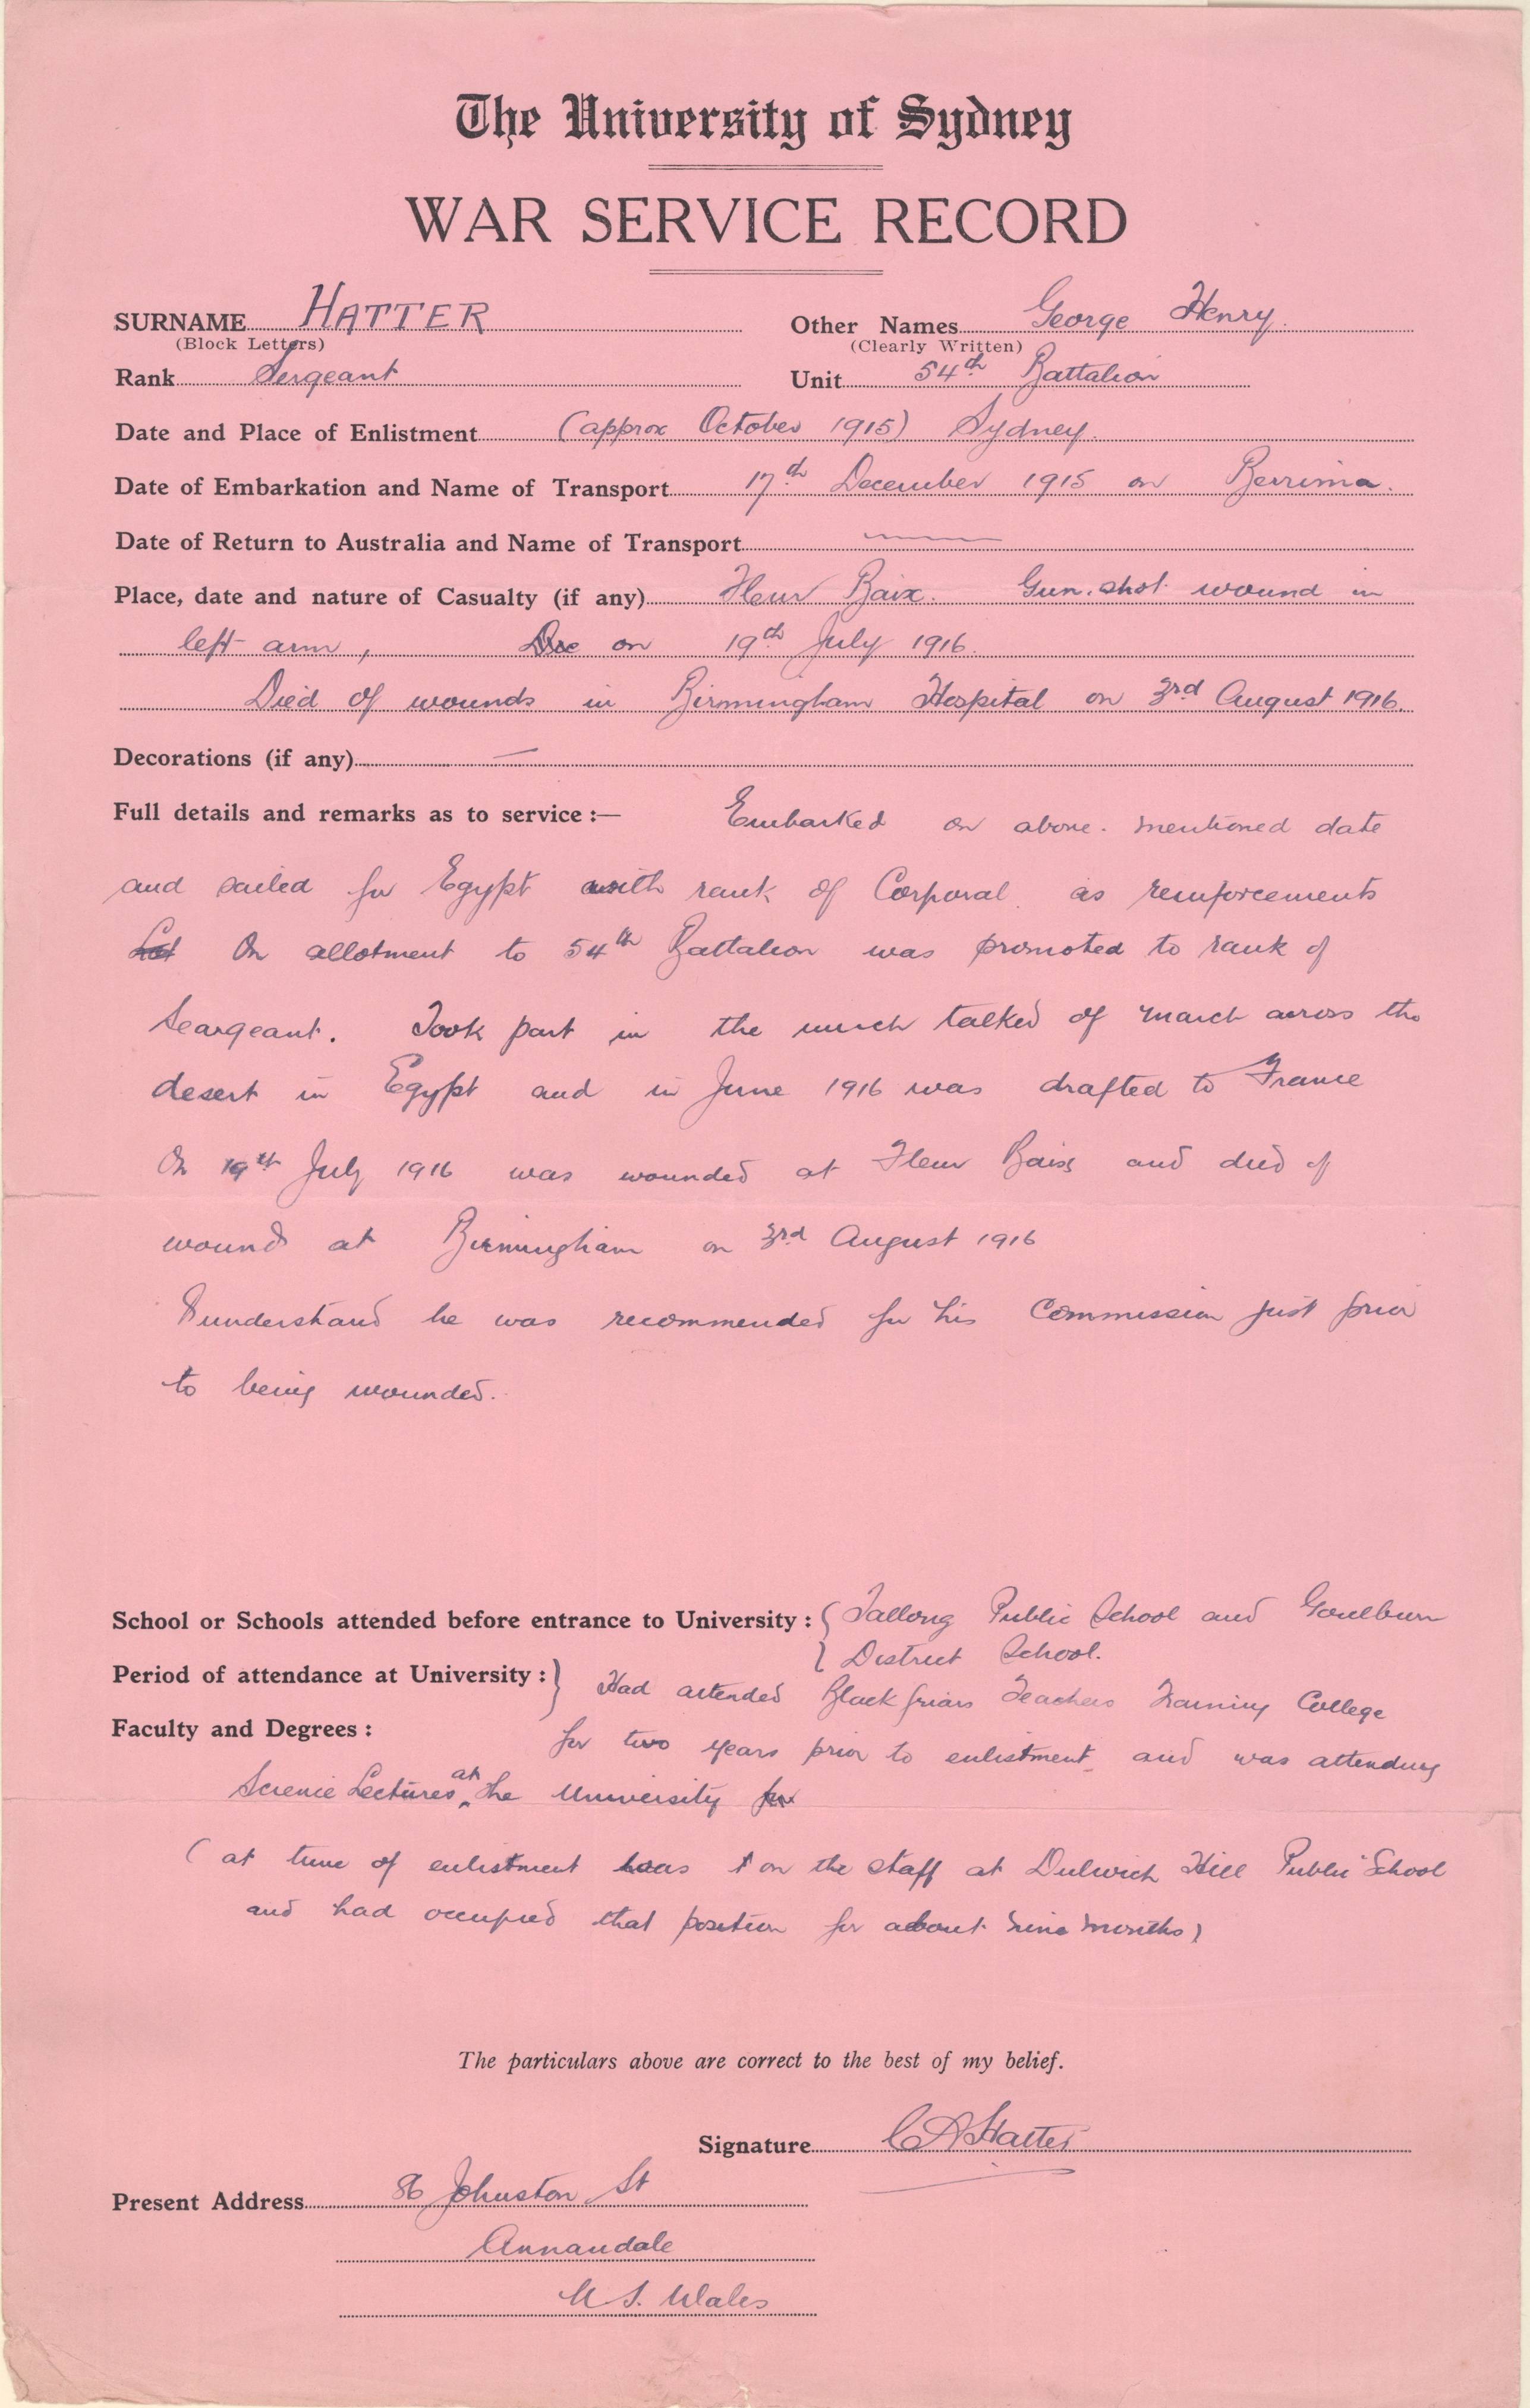 The University of Sydney
WAR SERVICE RECORD
SURNAME HATTER Other Names George Henry
(Block Letters) (Clearly Written)
Rank Sergeant Unit 54th Battalion
Date and Place of Enlistment (approx October 1915) Sydney.
Date of Embarkation and Name of Transport 17th December 1915 on Berrima.
Date of Return to Australia and Name of Transport
Place, date and nature of Casualty (if any) Fleur Baix. Gun.shot wound in
left arm, on 19th July 1916.
Died of wounds in Birmingham Hospital on 3rd August 1916.
Decorations (if any) —
Full details and remarks as to service :— Embarked on above. mentioned date
and sailed for Egypt with rank of Corporal as reinforcements
On allotment to 54th Battalion was promoted to rank of
Seargeant. Took part in the much talked of march across the
desert in Egypt and in June 1916 was drafted to France
On 19th July 1916 was wounded at Fleur Baix and died of
wounds at Birmingham on 3rd August 1916
I understand he was recommended for his Commission just prior
to being wounded.
School or Schools attended before entrance to University : { Tallong Public School and Goulburn
District School.
Period of attendance at University : } Had attended Blackfriars Teachers Training College
Faculty and Degrees : for two years prior to enlistment and was attending
Science Lectures at the University
(at time of enlistment was on the staff at Dulwich Hill Public School
and had occupied that position for about nine months)
The particulars above are correct to the best of my belief.
Signature C A Hatter
Present Address 86 Johnston St
Annandale
N S. Wales